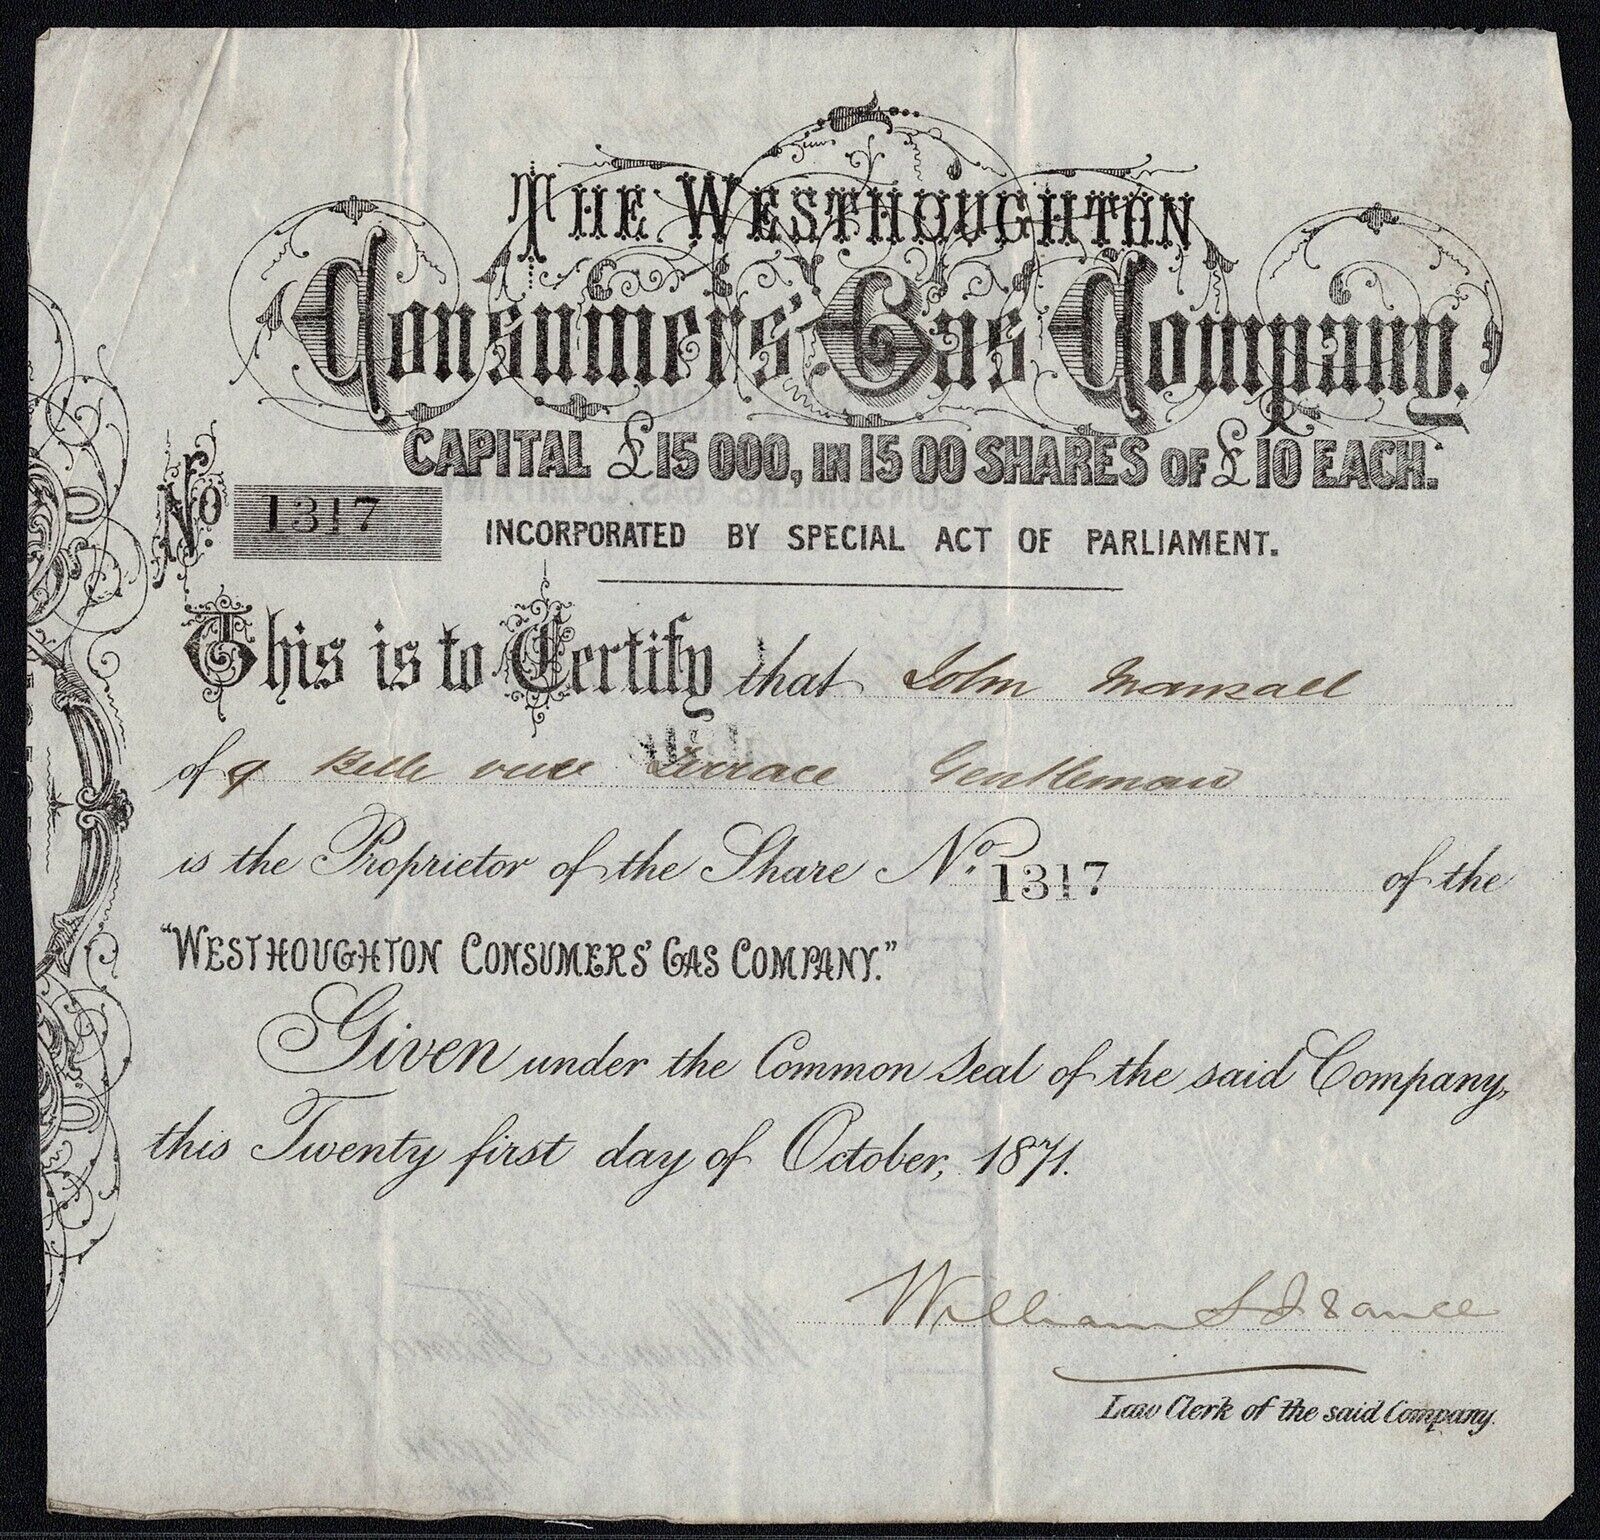 THE WESTHOUGHTON
Consumers' Gas Company.
CAPITAL £15 000, IN 15 00 SHARES OF £10 EACH.
No. 1317
INCORPORATED BY SPECIAL ACT OF PARLIAMENT.
This is to Certify that John Mansall
of 9 Belle vue Terrace Gentleman
is the Proprietor of the Share No. 1317 of the
"WESTHOUGHTON CONSUMERS' GAS COMPANY."
Given under the Common Seal of the said Company,
this Twenty first day of October, 1871.
William S France
Law Clerk of the said Company.